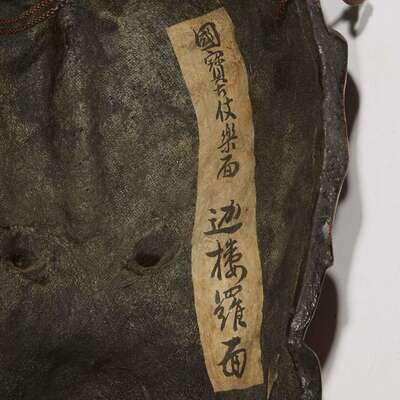 國寶古伎樂面 迦樓羅面